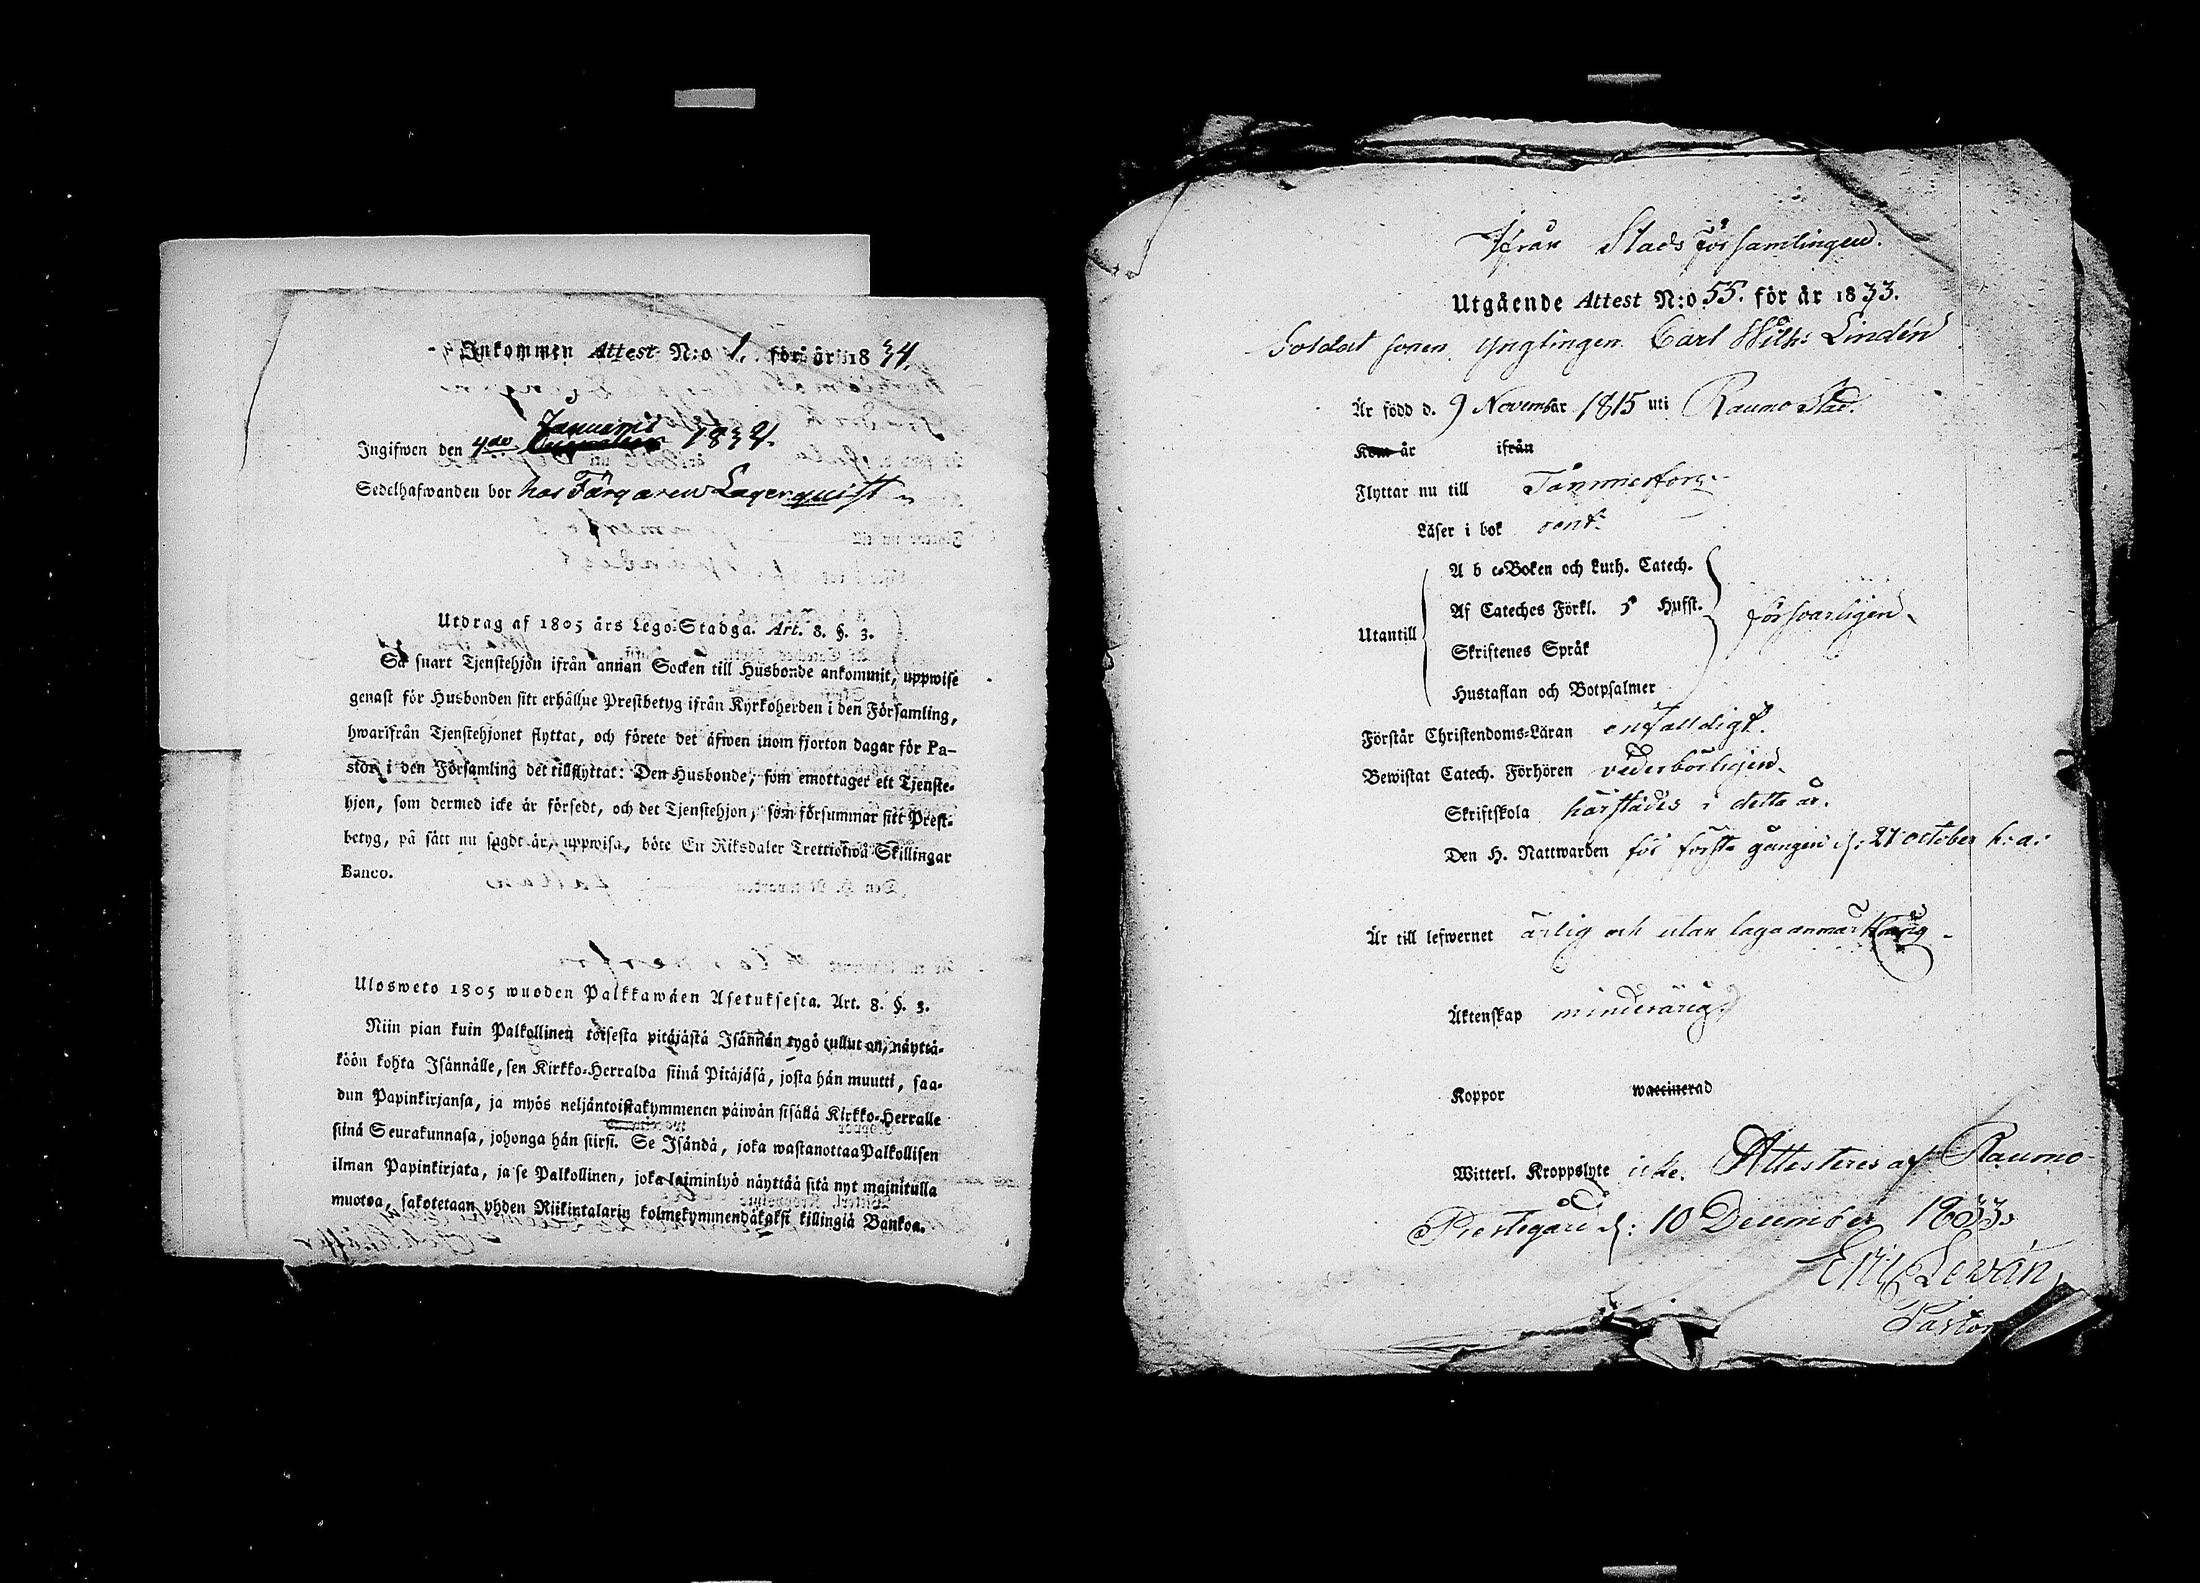 Inkommen Attest N:o 1. för år 1834.
Ingifwen den 4de Januarii 1834.
Sedelhafwanden bor hos Färgaren Lagerquist
Utdrag af 1805 års Lego-Stadga. Art. 8. §. 3.
Så snart Tjenstehjon ifrån annan Socken till Husbonde ankommit, uppwise
genast för Husbonden sitt erhållne Prestbetyg ifrån Kyrkoherden i den Församling,
hwarifrån Tjenstehjonet flyttat, och förete det äfwen inom fjorton dagar för Pa-
stor i den Församling det tillflyttat: Den Husbonde, som emottager ett Tjenste-
hjon, som dermed icke är försedt, och det Tjenstehjon, som försummar sitt Prest-
betyg, på sätt nu sagdt är, uppwisa, böte En Riksdaler Trettiotwå Skillingar
Banco.
Ulosweto 1805 wuoden Palkkawäen Asetuksesta. Art. 8. §. 3.
Niin pian kuin Palkollinen toisesta pitäjästä Isännän tygö tullut on, näyttä-
köön kohta Isännälle, sen Kirkko-Herralda siinä Pitäjäsä, josta hän muutti, saa-
dun Papinkirjansa, ja myös neljäntoistakymmenen päiwän sisällä Kirkko-Herralle
siinä Seurakunnasa, johonga hän siirsi. Se Isändä, joka wastanottaa Palkollisen
ilman Papinkirjata, ja se Palkollinen, joka laiminlyö näyttää sitä nyt mainitulla
muotoa, sakotetaan yhden Riikintalarin kolmekymmendäkaksi killingiä Bankoa.
Ifrån Stads församlingen.
Utgående Attest N:o 55. för år 1833.
Soldat sonen Ynglingen Carl Wilh: Lindén
Är född d. 9 November 1815 uti Raumo Stad.
Kom år ifrån
Flyttar nu till Tammerfors
Läser i bok rent.
A b c-Boken och Luth. Catech.
Af Cateches Förkl. 5 Hufst.
Utantill försvarligen
Skriftenes Språk
Hustaflan och Botpsalmer
Förstår Christendoms-Läran enfalldigt.
Bewistat Catech. Förhören vederbörligen
Skriftskola härstädes i detta år.
Den H. Nattwarden för första gången d: 27 october h: a:
Är till lefwernet ärlig och utan laga anmärkning
Äktenskap minderårig
Koppor waccinerad
Witterl. Kroppslyte icke. Attesteres af Raumo
Prestegård d: 10 December 1833.
Eric Levän
Pastor